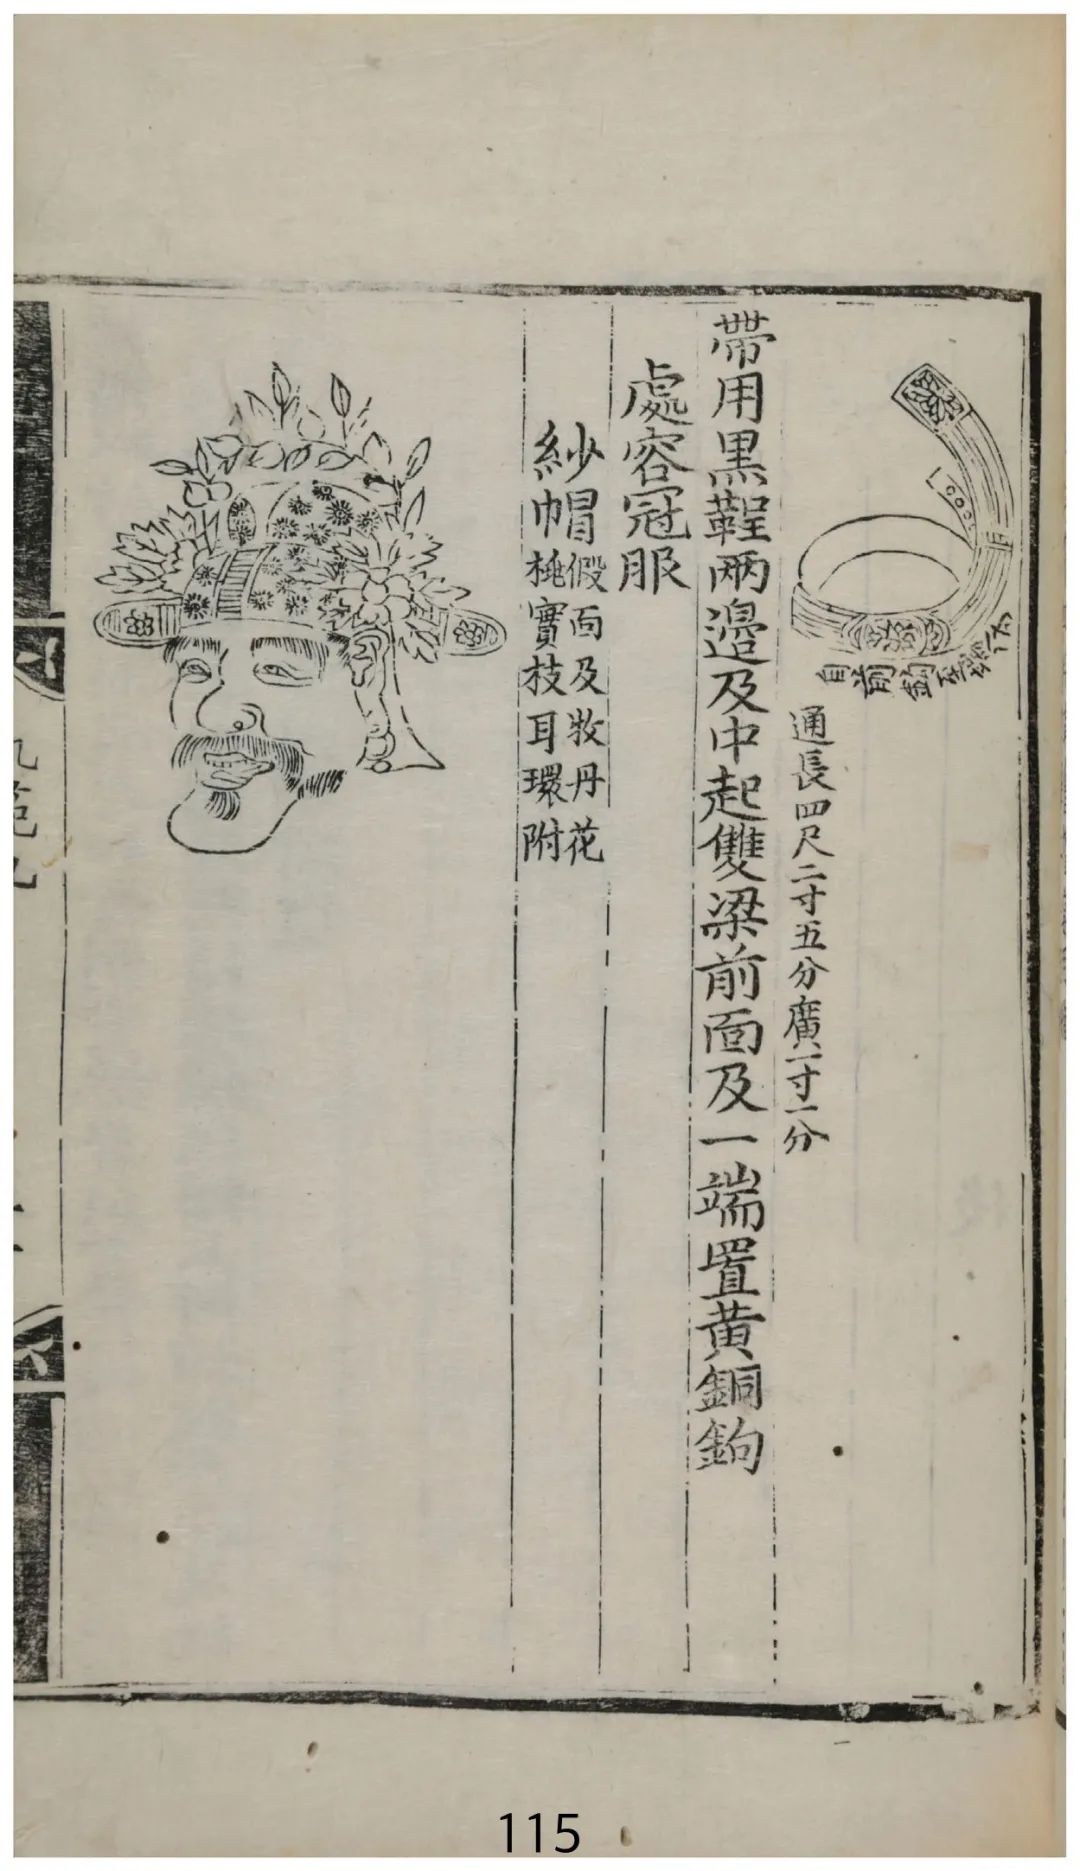 自前鉤至
通長四尺二寸五分廣寸一分
帶用黑鞓兩邊及中起雙梁前面及一端置黃銅鉤
處容冠服
紗帽
假面及牧丹花
桃實技耳環附
軌範九
115